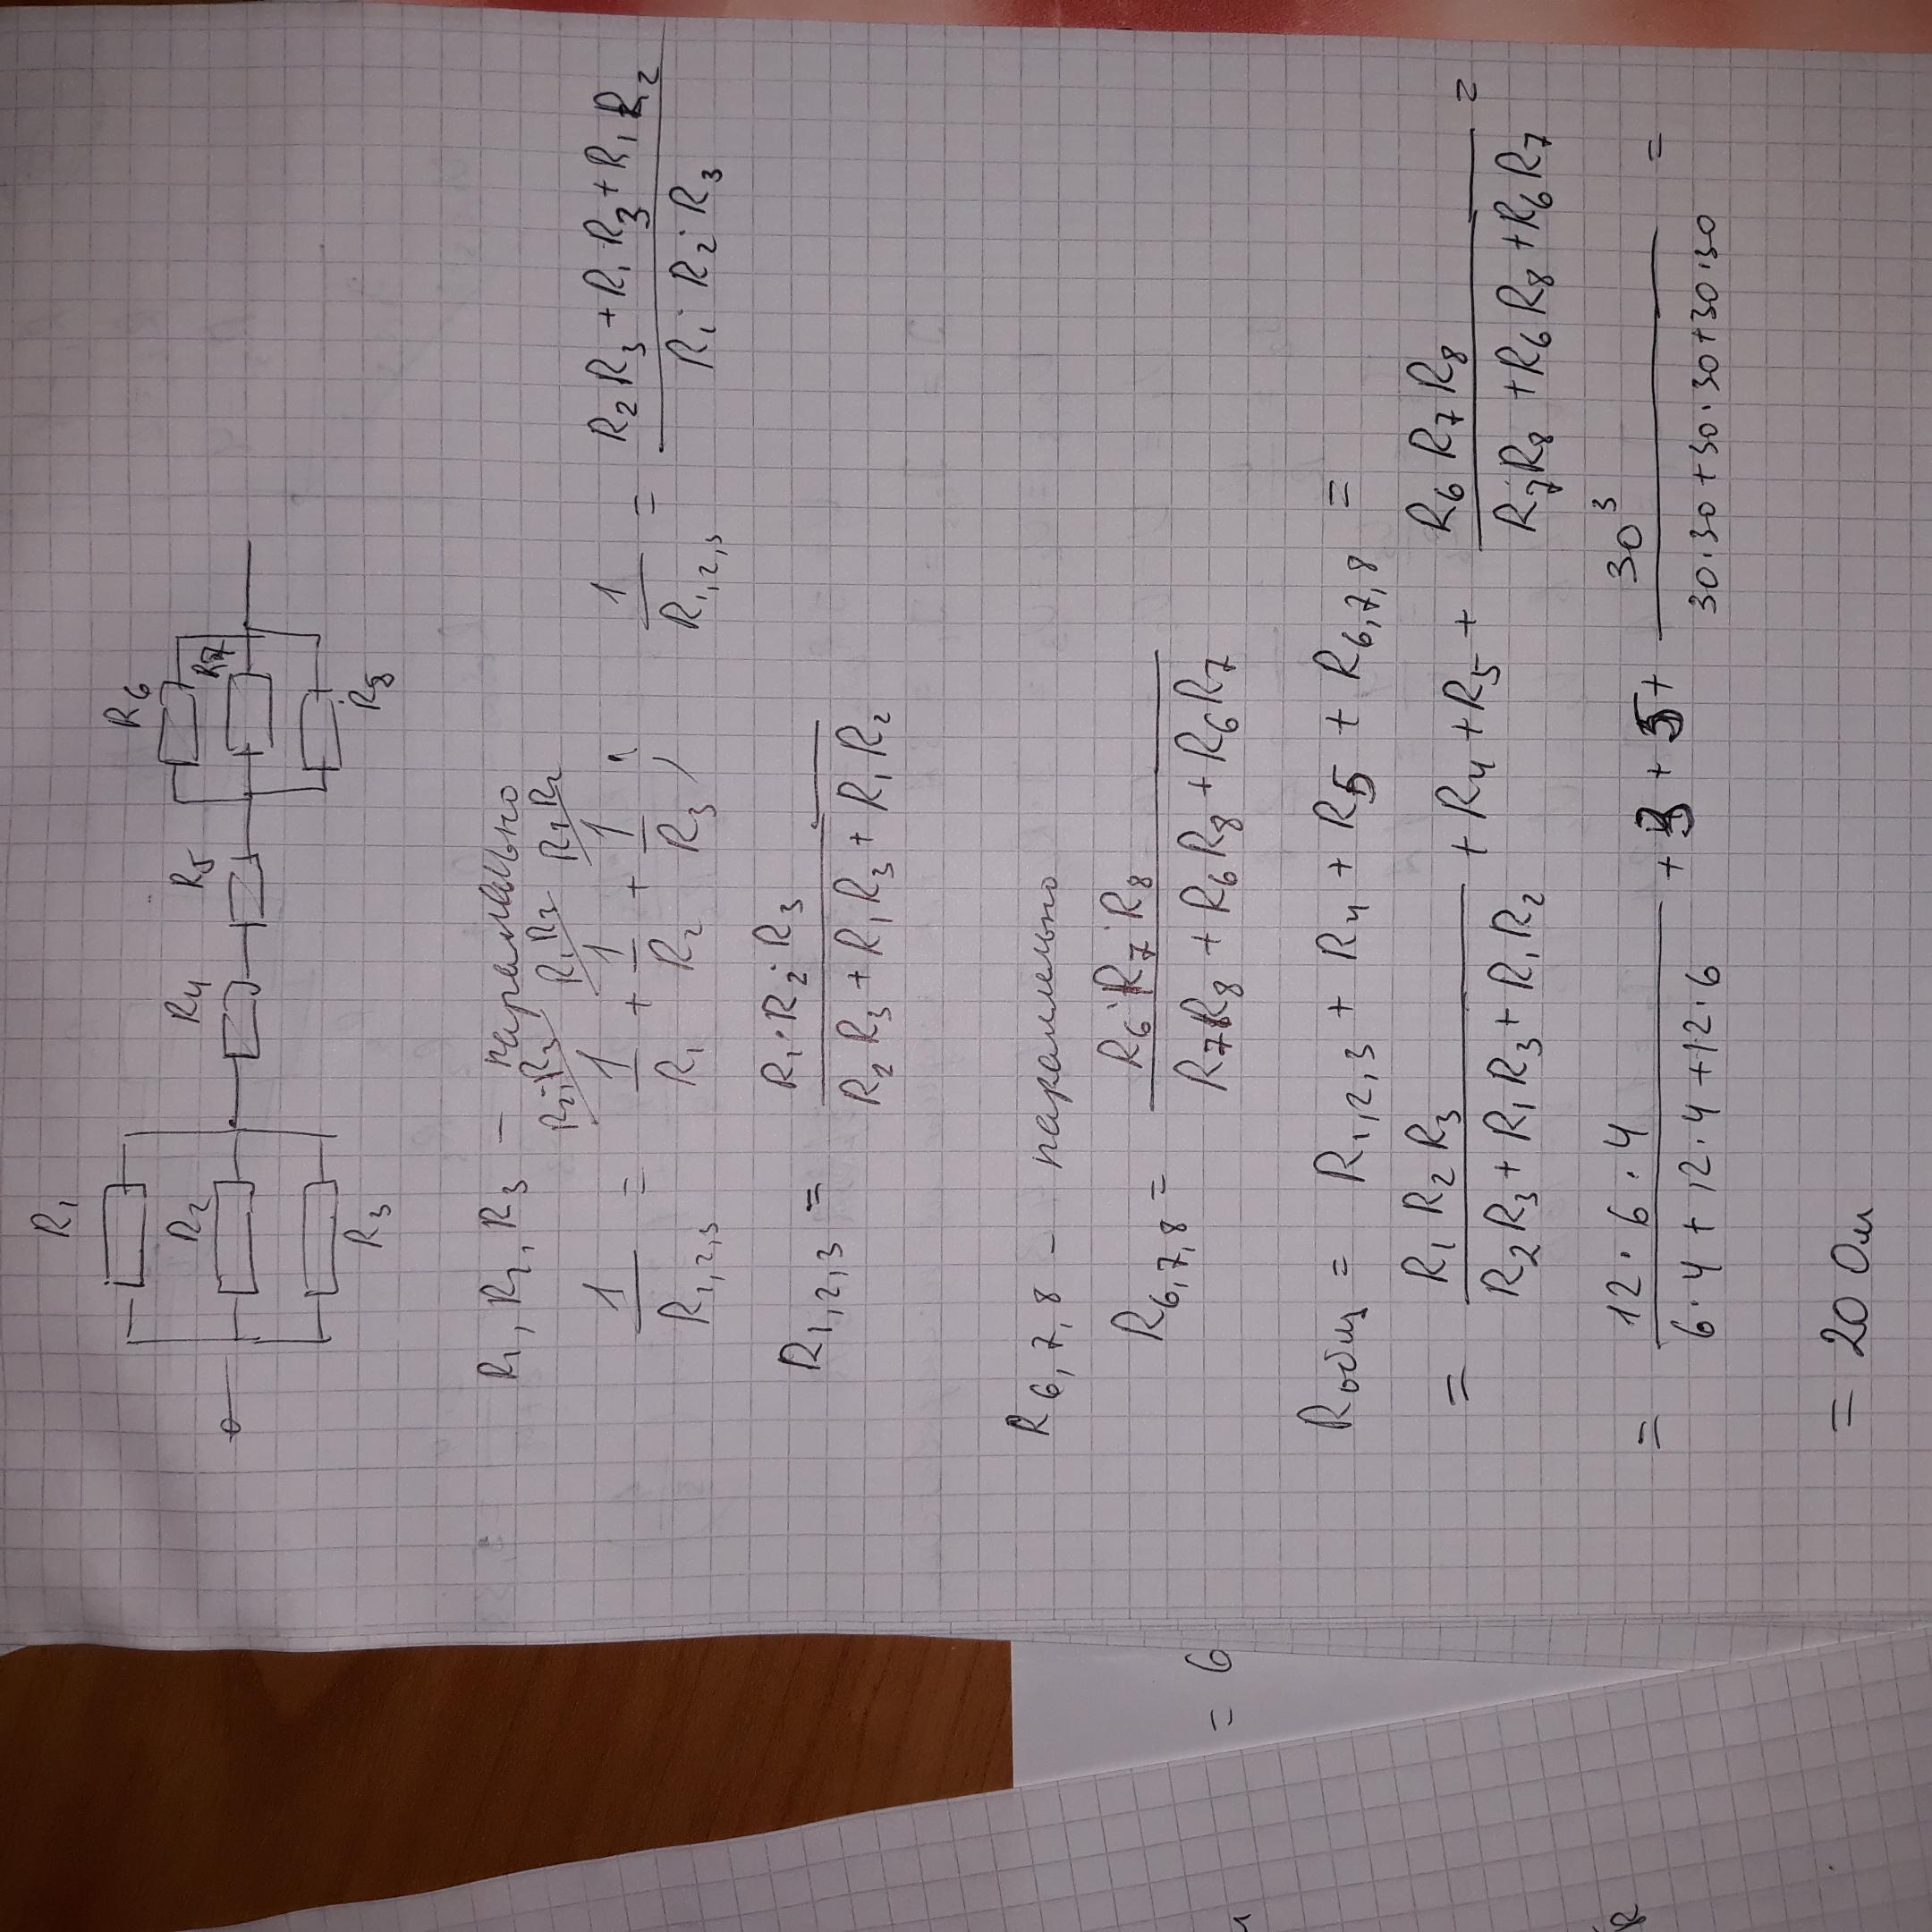 R1
R2
R3
R4
R5
R6
R7
R8
R1, R2, R3 – паралельно
R2·R3 R1R3 R1R2
1/R1,2,3 = 1/R1 + 1/R2 + 1/R3 ; 1/R1,2,3 = (R2R3 + R1R3 + R1R2)/(R1·R2·R3)
R1,2,3 = (R1·R2·R3)/(R2R3 + R1R3 + R1R2)
R6,7,8 – паралельно
R6,7,8 = (R6·R7·R8)/(R7R8 + R6R8 + R6R7)
Rобщ = R1,2,3 + R4 + R5 + R6,7,8 =
= (R1R2R3)/(R2R3 + R1R3 + R1R2) + R4 + R5 + (R6R7R8)/(R7R8 + R6R8 + R6R7) =
= (12·6·4)/(6·4 + 12·4 + 12·6) + 3 + 5 + 30³/(30·30 + 30·30 + 30·30) =
= 20 Ом
= 6